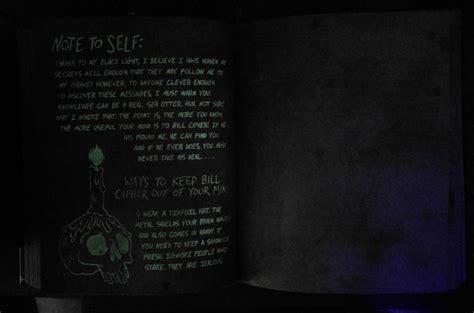 NOTE TO SELF:
THANKS TO MY BLACK LIGHT, I BELIEVE I HAVE HIDDEN MY
SECRETS WELL ENOUGH THAT THEY MAY FOLLOW ME TO
MY GRAVE! HOWEVER, TO ANYONE CLEVER ENOUGH
TO DISCOVER THESE MESSAGES, I MUST WARN YOU:
KNOWLEDGE CAN BE A REAL SEA OTTER. HUH, NOT SURE
WHY I WROTE THAT. THE POINT IS, THE MORE YOU KNOW,
THE MORE USEFUL YOUR MIND IS TO BILL CIPHER! IF HE
HAS FOUND ME, HE CAN FIND YOU.
AND IF HE EVER DOES, YOU MUST
NEVER TAKE HIS DEAL....
WAYS TO KEEP BILL
CIPHER OUT OF YOUR MIND
WEAR A TINFOIL HAT. THE
METAL SHIELDS YOUR BRAIN WAVES
AND ALSO COMES IN HANDY IF
YOU NEED TO KEEP A SANDWICH
FRESH. IGNORE PEOPLE WHO
STARE. THEY ARE JEALOUS.